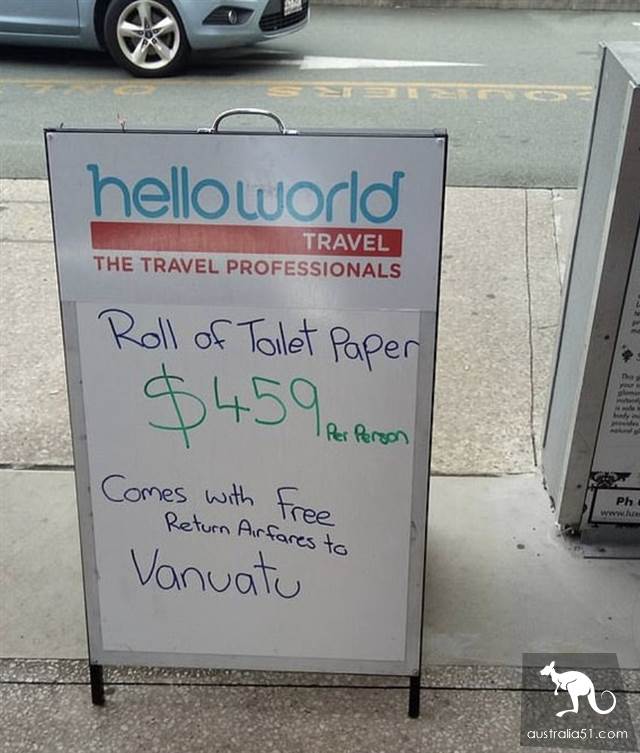 helloworld
TRAVEL
THE TRAVEL PROFESSIONALS
Roll of Toilet Paper
$459 Per Person
Comes with Free
Return Airfares to
Vanuatu
Ph
australia51.com